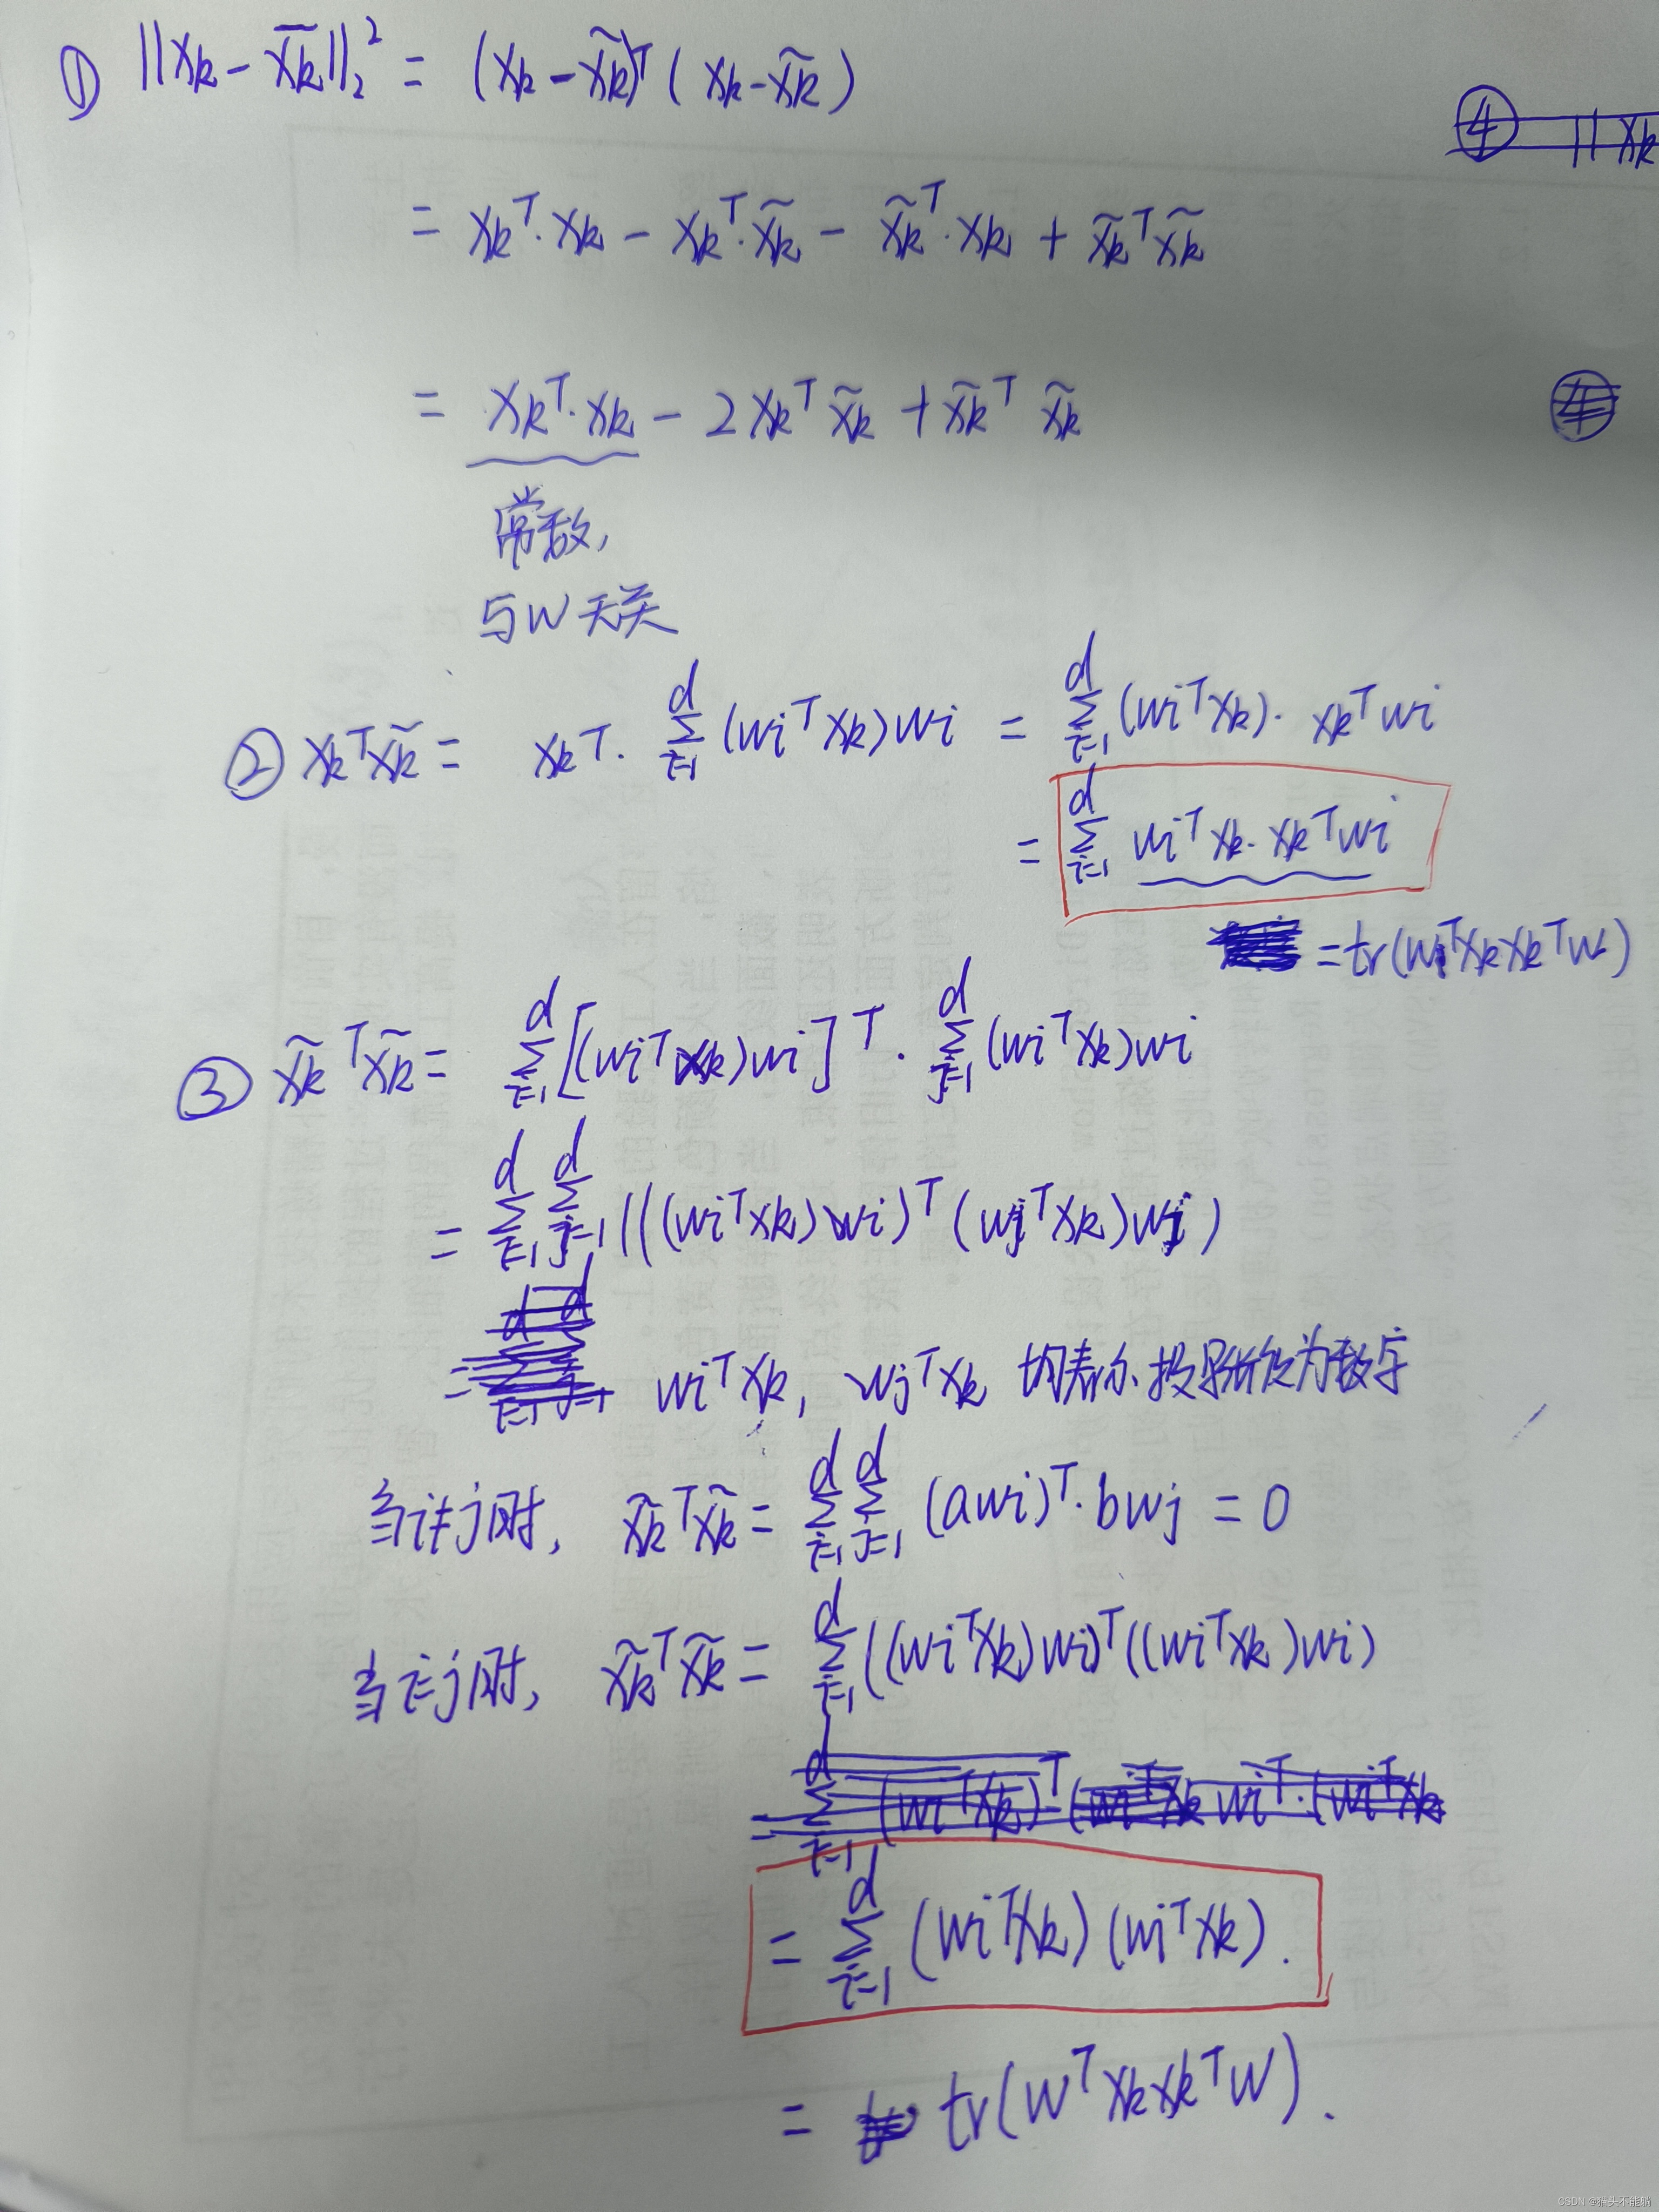 ① ||xk - x̄k||₂² = (xk - x̃k)ᵀ (xk - x̃k)
④ || xk
= xkᵀ·xk - xkᵀ·x̃k - x̃kᵀ·xk + x̃kᵀx̃k
= xkᵀ·xk - 2xkᵀx̃k + x̃kᵀ x̃k
④
常数,
与W无关
② xkᵀx̃k = xkᵀ· Σ_{i=1}^{d} (wiᵀxk)wi = Σ_{i=1}^{d} (wiᵀxk)· xkᵀwi
= Σ_{i=1}^{d} wiᵀxk·xkᵀwi
= tr(WᵀxkxkᵀW)
③ x̃kᵀx̃k = Σ_{i=1}^{d} [(wiᵀxk)wi]ᵀ · Σ_{j=1}^{d} (wiᵀxk)wi
= Σ_{i=1}^{d} Σ_{j=1}^{d} (((wiᵀxk)wi)ᵀ (wjᵀxk)wj)
wiᵀxk, wjᵀxk 均表示投影 为数字
当i≠j时, x̃kᵀx̃k = Σ_{i=1}^{d} Σ_{j=1}^{d} (awi)ᵀ·bwj = 0
当i=j时, x̃kᵀx̃k = Σ_{i=1}^{d} ((wiᵀxk)wi)ᵀ((wiᵀxk)wi)
= Σ_{i=1}^{d} (wiᵀxk)(wiᵀxk).
= tr(WᵀxkxkᵀW).
CSDN @猫头不能鹰